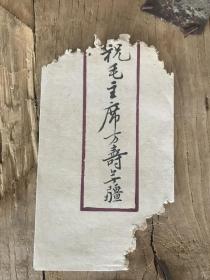 祝毛主席万寿无疆